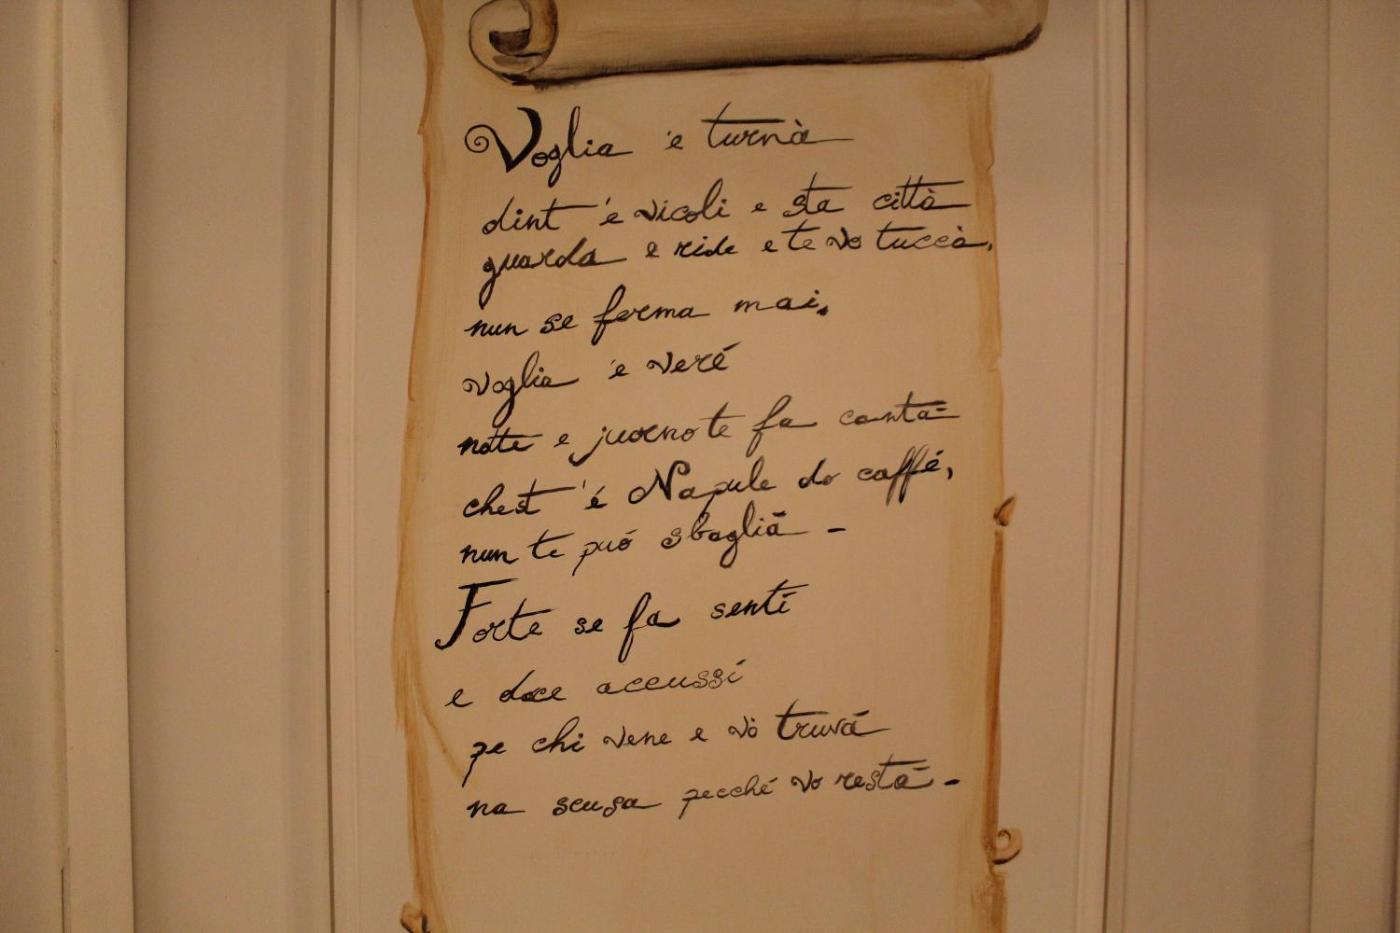 Voglia 'e turnà
dint 'e vicoli e sta città
guarda e ride e te vo tuccà,
nun se ferma mai.
voglia 'e veré
notte e juorno te fa cantà
chest 'é Napule do caffé,
nun te puó sbagliá -
Forte se fa sentí
e doce accussí
pe chi vene e vò truvá
na scusa pecché vo restá -